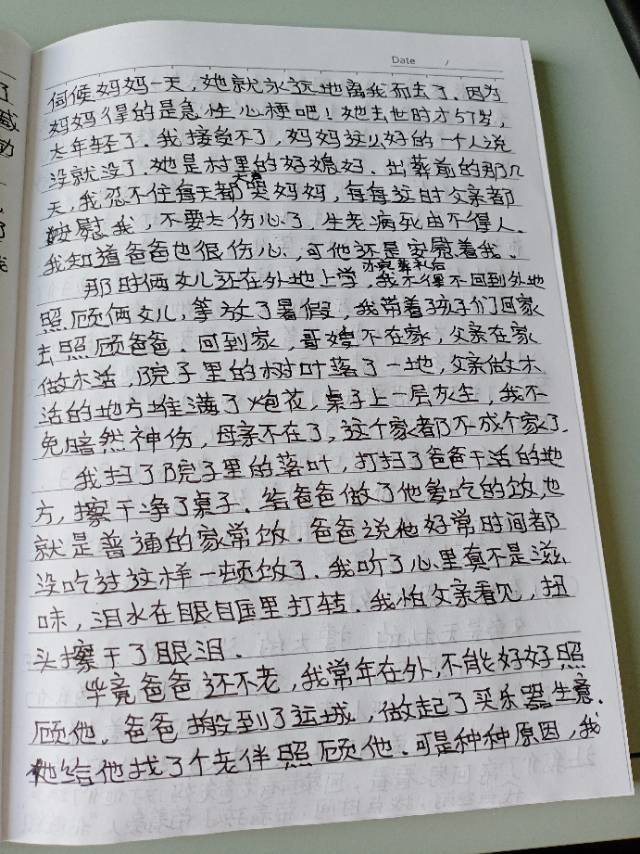 Date /
伺候妈妈一天，她就永远地离我而去了．因为
妈妈得的是急性心梗吧！她去世时才57岁，
太年轻了．我接受不了，妈妈这么好的一个人说
没就没了．她是村里的好媳妇．出葬前的那几
天，我忍不住每天都大声哭妈妈，每每这时父亲都
安慰我，不要太伤心了，生老病死由不得人．
我知道爸爸也很伤心，可他还是安慰着我．
那时俩女儿还在外地上学，办完葬礼后我不得不回到外地
照顾俩女儿，等放了暑假，我带着孩子们回家
去照顾爸爸．回到家，哥嫂不在家，父亲在家
做木活，院子里的树叶落了一地，父亲做木
活的地方堆满了炮花，桌子上一层灰尘，我不
免暗然神伤，母亲不在了，这个家都不成个家了．
我扫了院子里的落叶，打扫了爸爸干活的地
方，擦干净了桌子．给爸爸做了他爱吃的饭，也
就是普通的家常饭．爸爸说他好常时间都
没吃过这样一顿饭了．我听了心里真不是滋
味，泪水在眼眶里打转．我怕父亲看见，扭
头擦干了眼泪．
毕竟爸爸还不老，我常年在外，不能好好照
顾他．爸爸搬到了运城，做起了买乐器生意．
她给他找了个老伴照顾他．可是种种原因，我